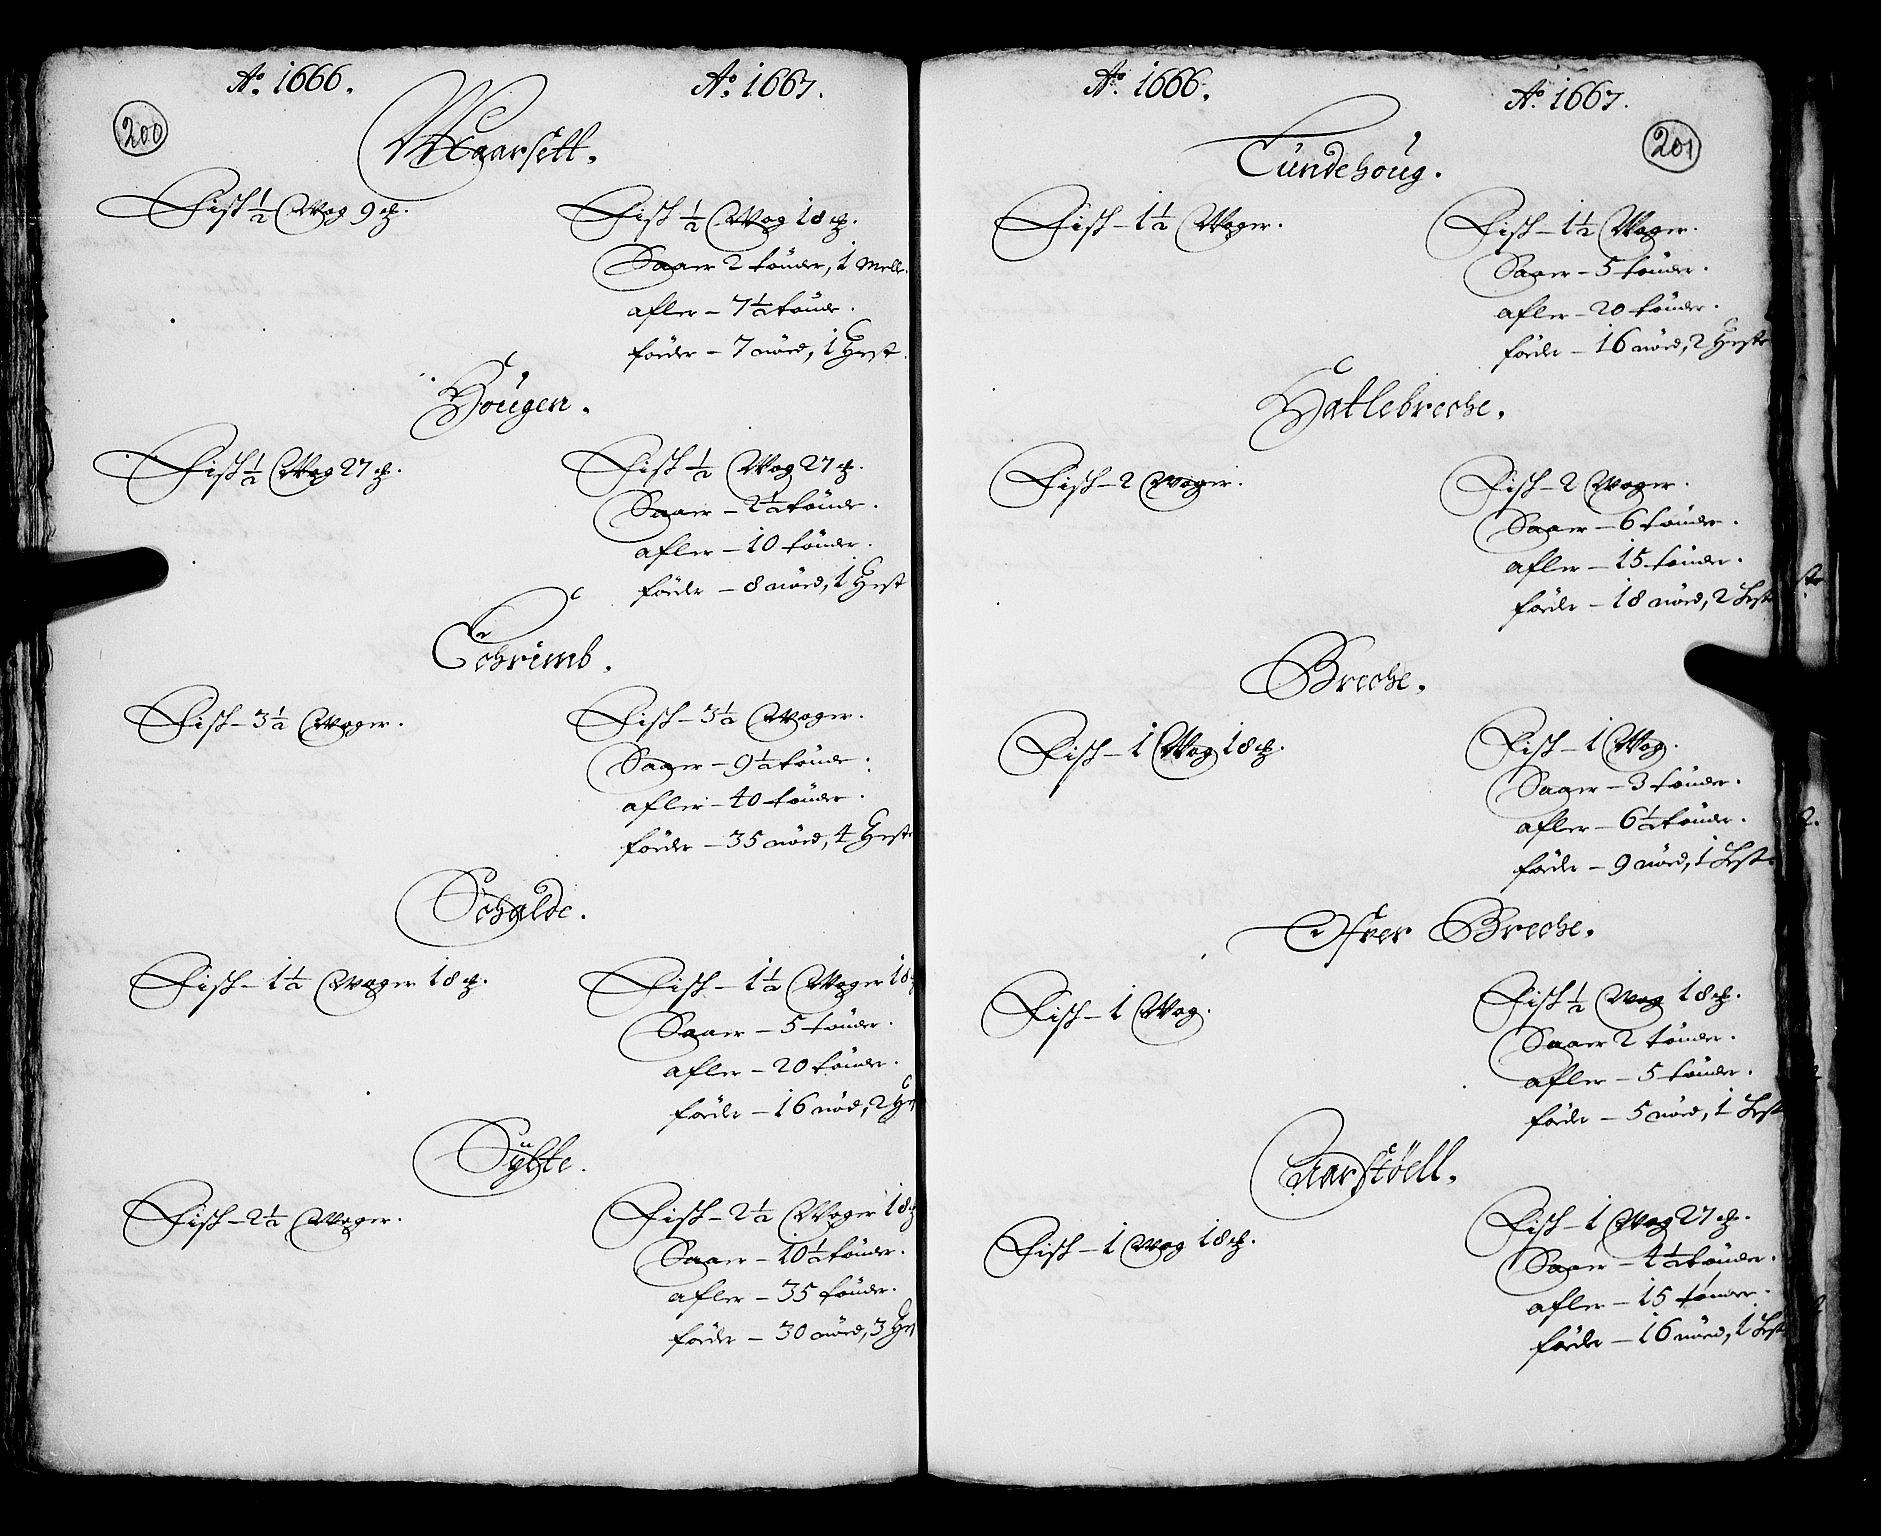 200
Aº. 1666.
Aº. 1667.
Maarsett.
Fisk ½ Wog 9 ℔.
Fisk ½ Wog 18 ℔.
Saaer 2 tönder, 1 Mele.
afler – 7½ tönder.
föeder – 7 nöed, 1 Hest.
Hougen.
Fisk ½ Wog 27 ℔.
Fisk ½ Wog 27 ℔.
Saaer – 2½ tönder.
afler – 10 tönder.
föeder – 8 nöed, 1 Hest
Schrimb.
Fisk – 3½ Woger.
Fisk – 3½ Woger.
Saaer – 9½ tönder.
afler – 40 tönder.
föeder – 35 nöed, 4 Heste
Schalde.
Fisk – 1½ Woger 18 ℔.
Fisk – 1½ Woger 18
Saaer – 5 tönder.
afler – 20 tönder.
föeder – 16 nöed, 2 He
Sÿlte.
Fisk – 2½ Woger.
Fisk – 2½ Woger 18 ℔
Saaer – 10½ tönder.
afler – 35 tönder.
föeder – 30 nöed, 3 Hes
201
Aº. 1666.
Aº. 1667.
Tundehoug.
Fisk – 1½ Woger.
Fisk – 1½ Woger.
Saaer – 5 tönder.
afler – 20 tönder.
föeder – 16 nöed, 2 Heste
Hatlebreche.
Fisk – 2 Woger.
Fisk – 2 Woger.
Saaer – 6 tönder.
afler – 15 tönder.
föeder – 18 nöed, 2 Heste
Breche.
Fisk – 1 Wog 18 ℔.
Fisk – 1 Wog.
Saaer – 3 tönder.
afler – 6½ tönder.
föeder – 9 nöed, 1 Hest
Öfver Breche.
Fisk – 1 Wog.
Fisk ½ Wog 18 ℔.
Saaer 2 tönder.
afler – 5 tönder.
föeder – 5 nöed, 1 Hest
Aarstöell.
Fisk – 1 Wog 18 ℔.
Fisk – 1 Wog 27 ℔.
Saaer – 4½ tönder.
afler – 15 tönder.
föeder – 16 nöed, 1 Hest